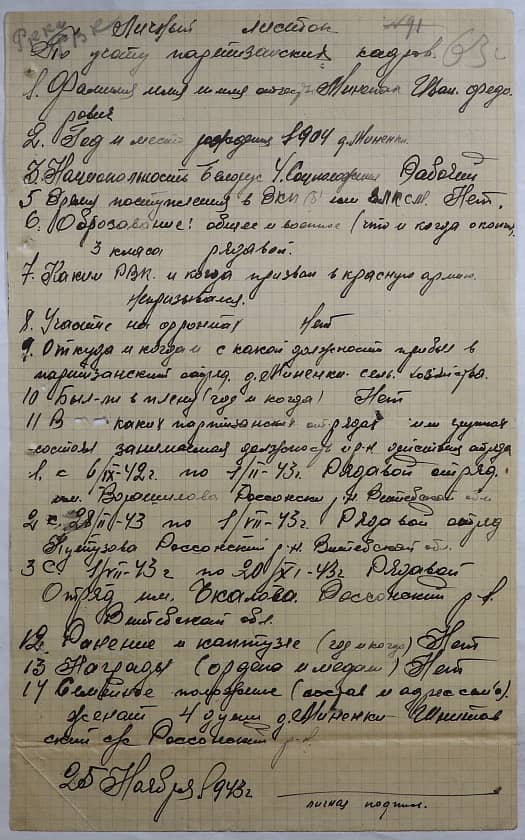 Личный листок №91
По учоту партизанских кадров. 63
1. Фамилия имя и имя отчество Миненок Иван Федо
рович
2. Год и место рождения 1904 д. Миненки.
3. Национольность Белорус 4. Соцположения Рабочий
5 Время поступления в ВКП(б) или ВЛКСМ. Нет.
6. Образование: общее и военное (что и когда окончил)
3 класа рядавой.
7. Каким РВК. и когда призван в красную армию
Непризывался.
8. Участие на фронтах Нет
9. Откуда и когда и с какой должности прибыл в
партизанский отряд. д. Миненки. сель. хозяйства.
10 Был-ли в плену (год и когда) Нет
11 В каких партизанских отрядах или групнах
состоял занимаемая должность и р-н действия отряда
1. с 6/IX-42г. по 1/II-43г. Рядавой отряд.
им. Ворошилова Россонски р.н Витебской обл
2 с 28/II-43 по 1/VII-43г. Рядавой отряд
Кутузова Россонский р-н. Витебской обл.
3 С. 1/VII-43г по 20/XI-43г Рядавой
Отряд им. Чкалова. Россонский р-н.
Витебской обл.
12. Ранение и контузие (год и когда) Нет
13 Награды (ордена и медали) Нет
14 Семейное положение (состав и адрес семьи).
женат 4 души д. Миненки
ский с/с Россонский р-н
25 Ноября 1943г
личная подпись.